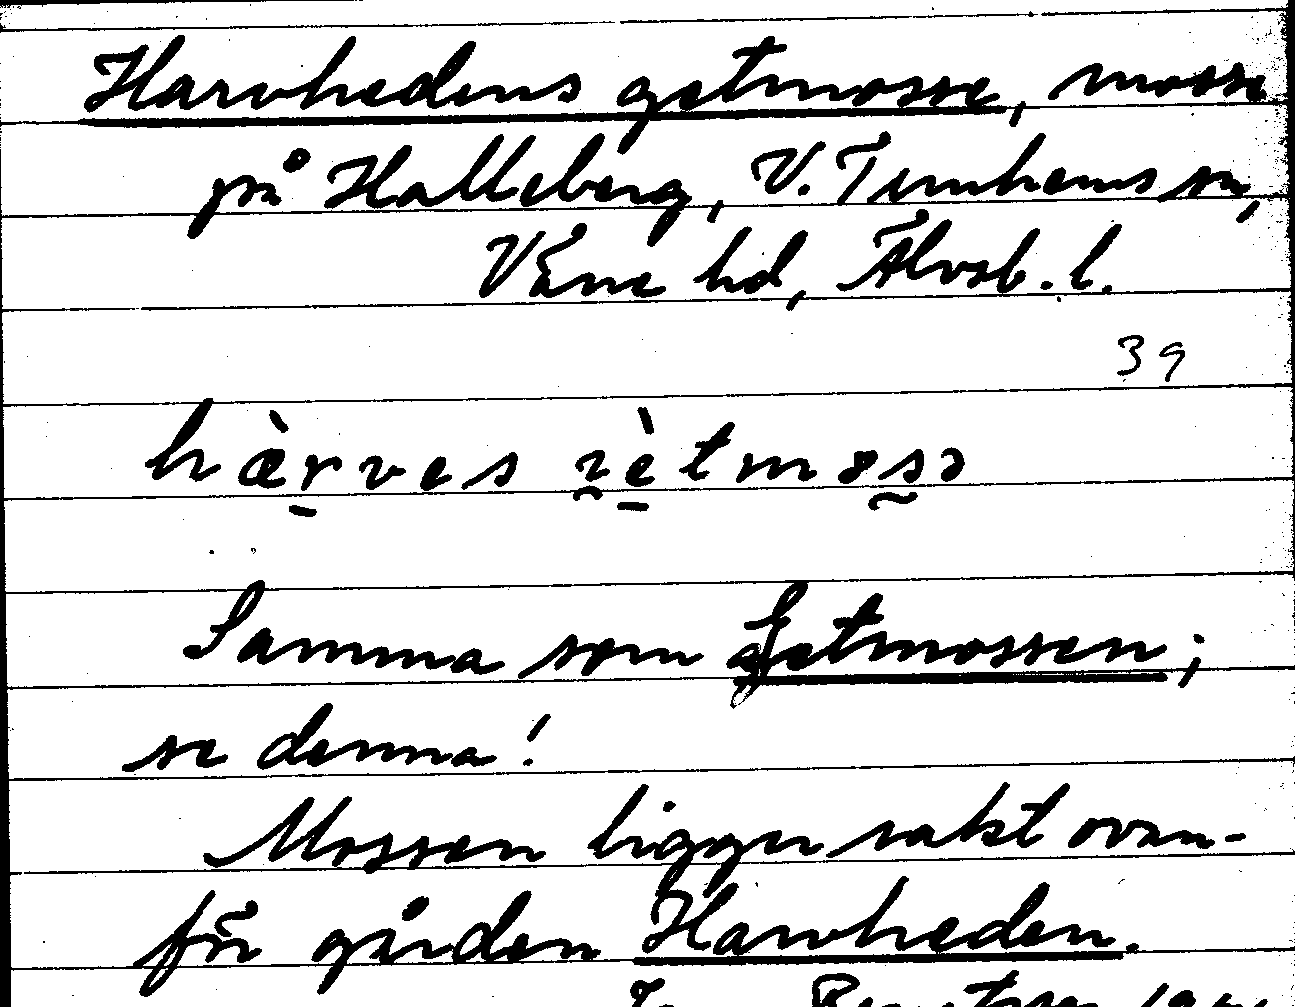 Harvhedens getmosse, mosse
på Halleberg, V. Tunhems sn,
Väne hd, Älvsb. l.
39
hærves
Samma som Getmossen;
se denna!
Mossen ligger rakt ovan-
för gården Harvheden.